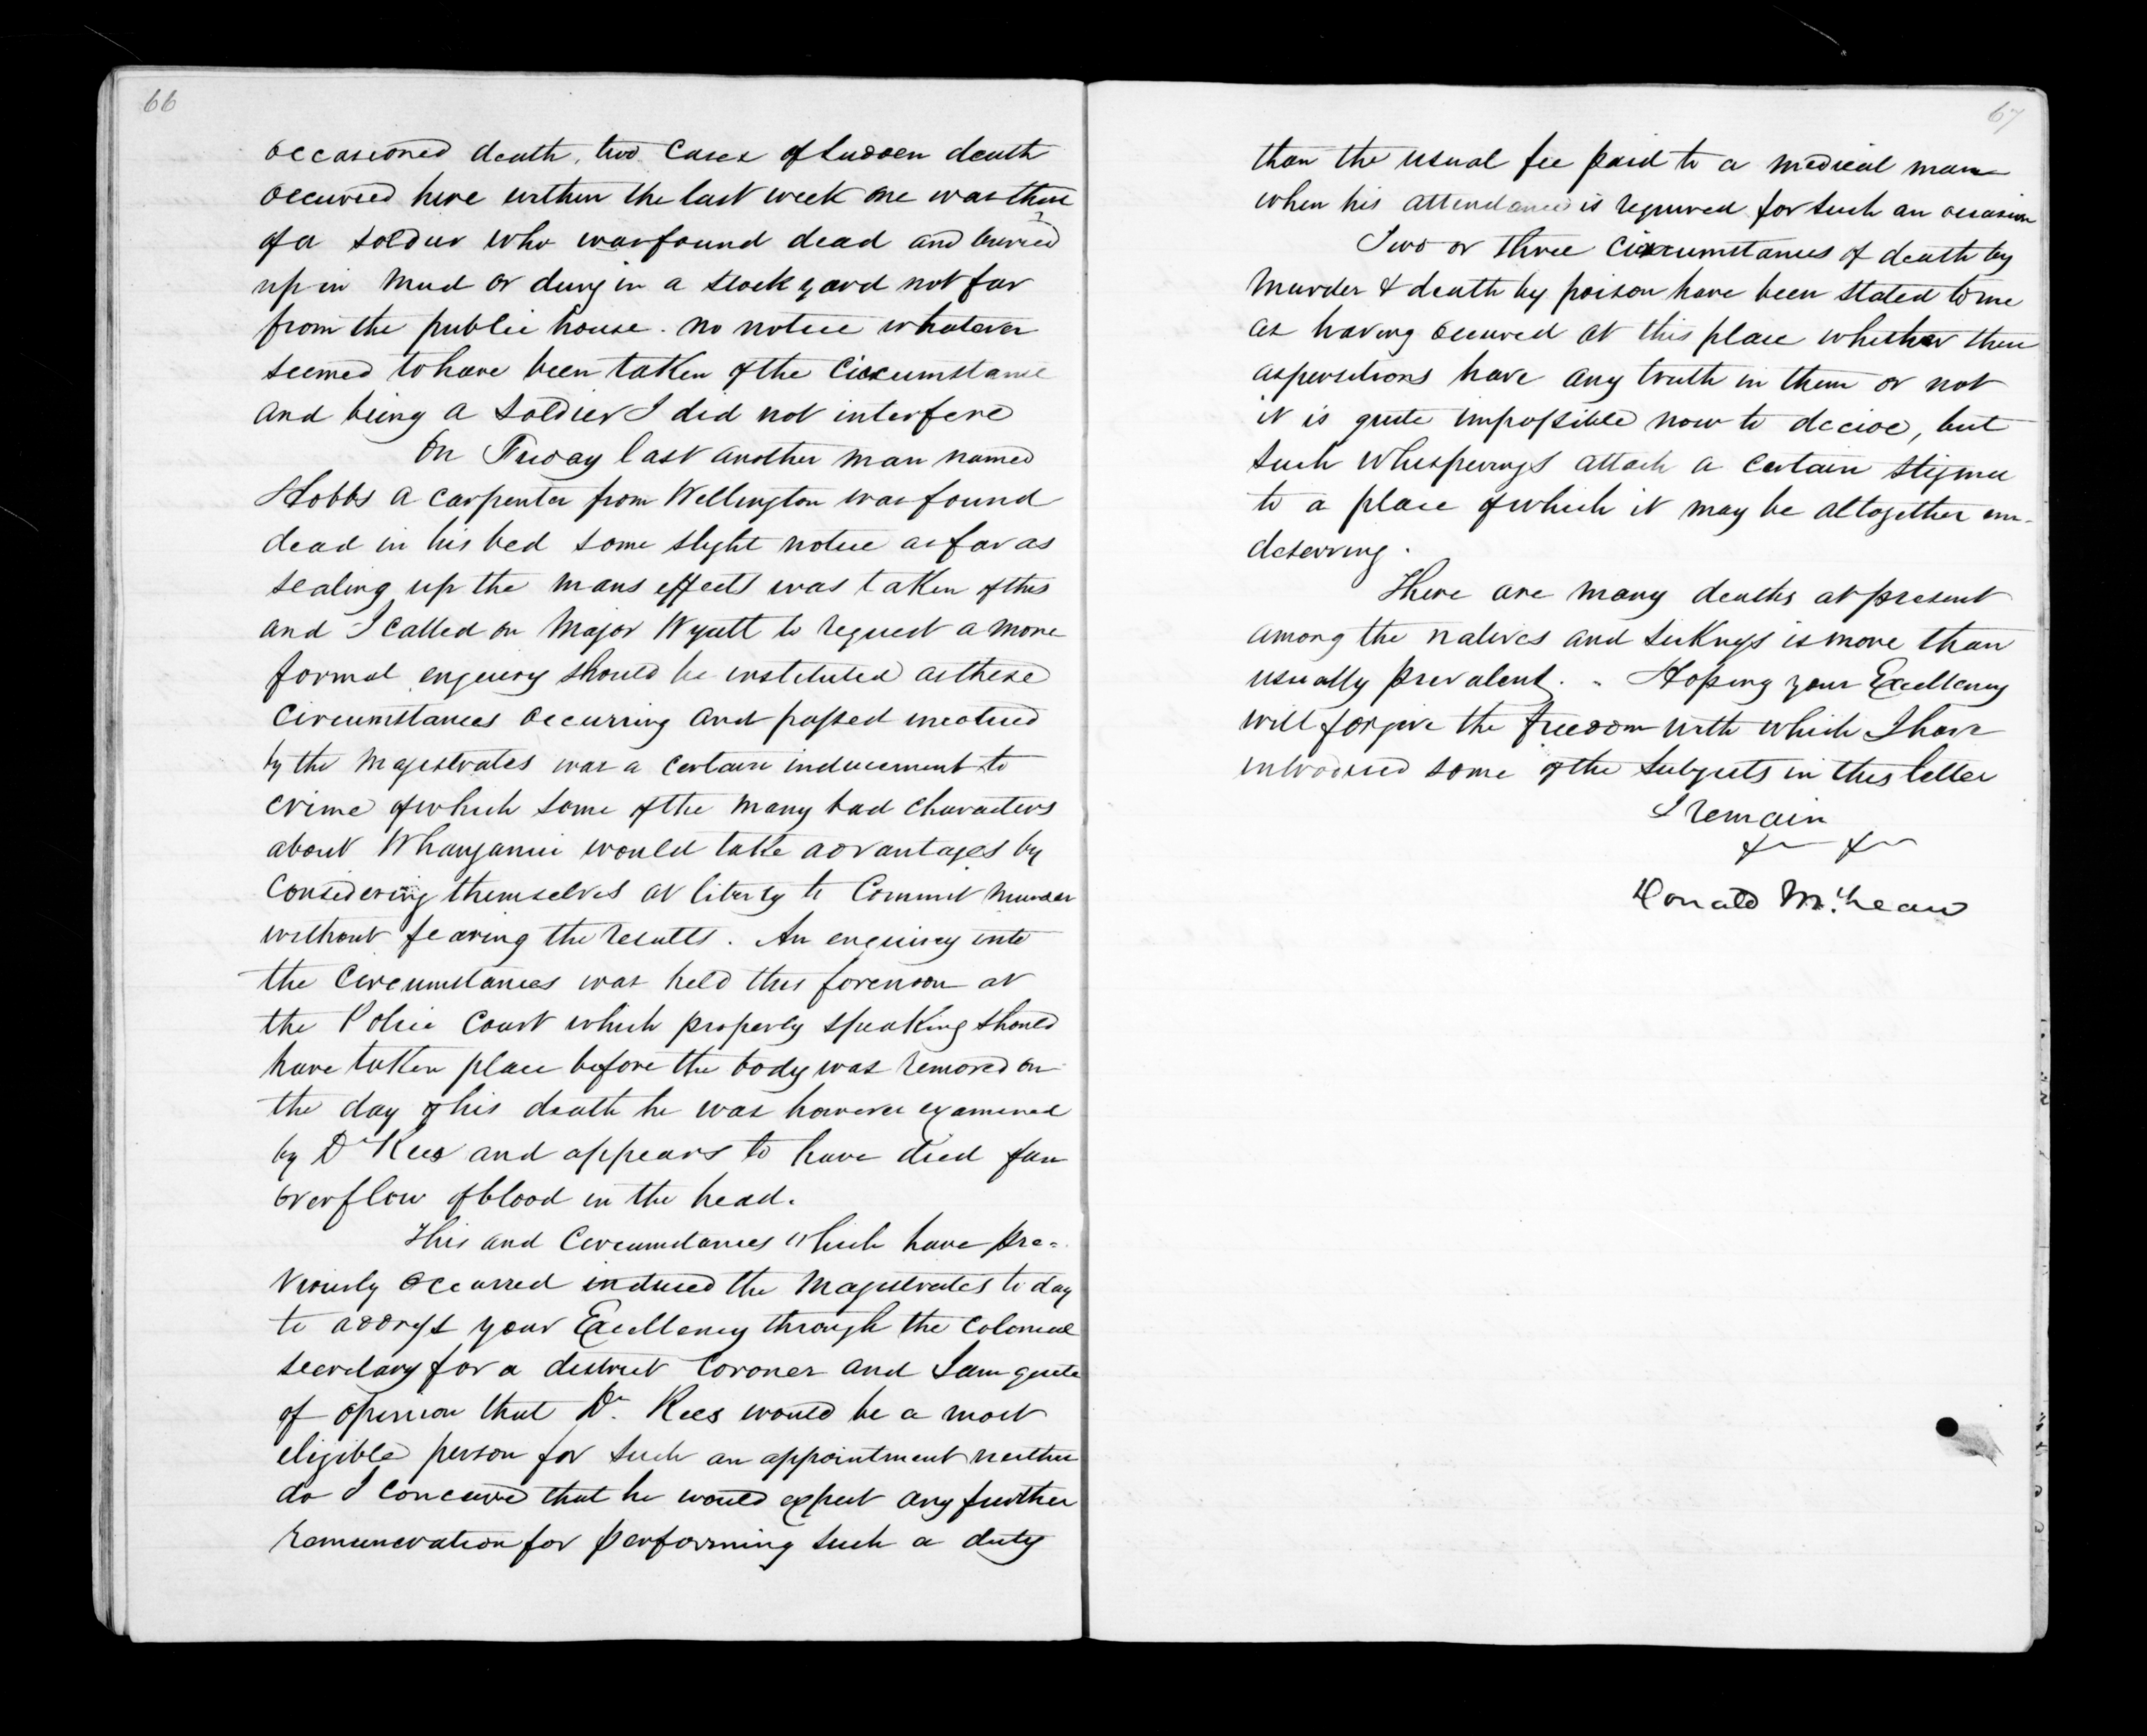 66
occasioned death, two cases of sudden death
occurred here within the last week one was there
of a soldier who was found dead and burried
up in mud or dung in a stock yard not far
from the public house. no notice whatever
seemed to have been taken of the circumstance
and being a soldier I did not interfere
On Friday last another man named
Hobbs a carpenter from Wellington was found
dead in his bed some slight notice as far as
sealing up the mans effects was taken of this
and I called on Major Wyatt to request a more
formal enquiry should be instituted as these
circumstances occurring and passed unnoticed
by the magistrates was a certain inducement to
crime of which some of the many bad characters
about Whanganui would take advantages by
considering themselves at liberty to commit murder
without fearing the results. An enquiry into
the circumstances was held this forenoon at
the Police Court which properly speaking should
have taken place before the body was removed on
the day of his death he was however examined
by Dr Rees and appears to have died from
overflow of blood in the head.
This and circumstances which have pre=
viously occurred induced the Magistrates to day
to address your Excellency through the Colonial
secretary for a district Coroner and I am quite
of opinion that Dr. Rees would be a most
eligible person for such an appointment neither
do I conceive that he would expect any further
remuneration for performing such a duty
67
than the usual fee paid to a medical man
when his attendance is required for such an occasion
Two or three circumstances of death by
murder & death by poison have been stated to me
as having occured at this place whether these
aspersions have any truth in them or not
it is quite impossible now to decide, but
such whisperings attach a certain stigma
to a place of which it may be altogether un-
deserving.
There are many deaths at present
among the natives and sickness is more than
usually prevalent. - Hoping your Excellency
will forgive the freedom with which I have
introduced some of the subjects in this letter
I remain
&c &c
Donald McLean